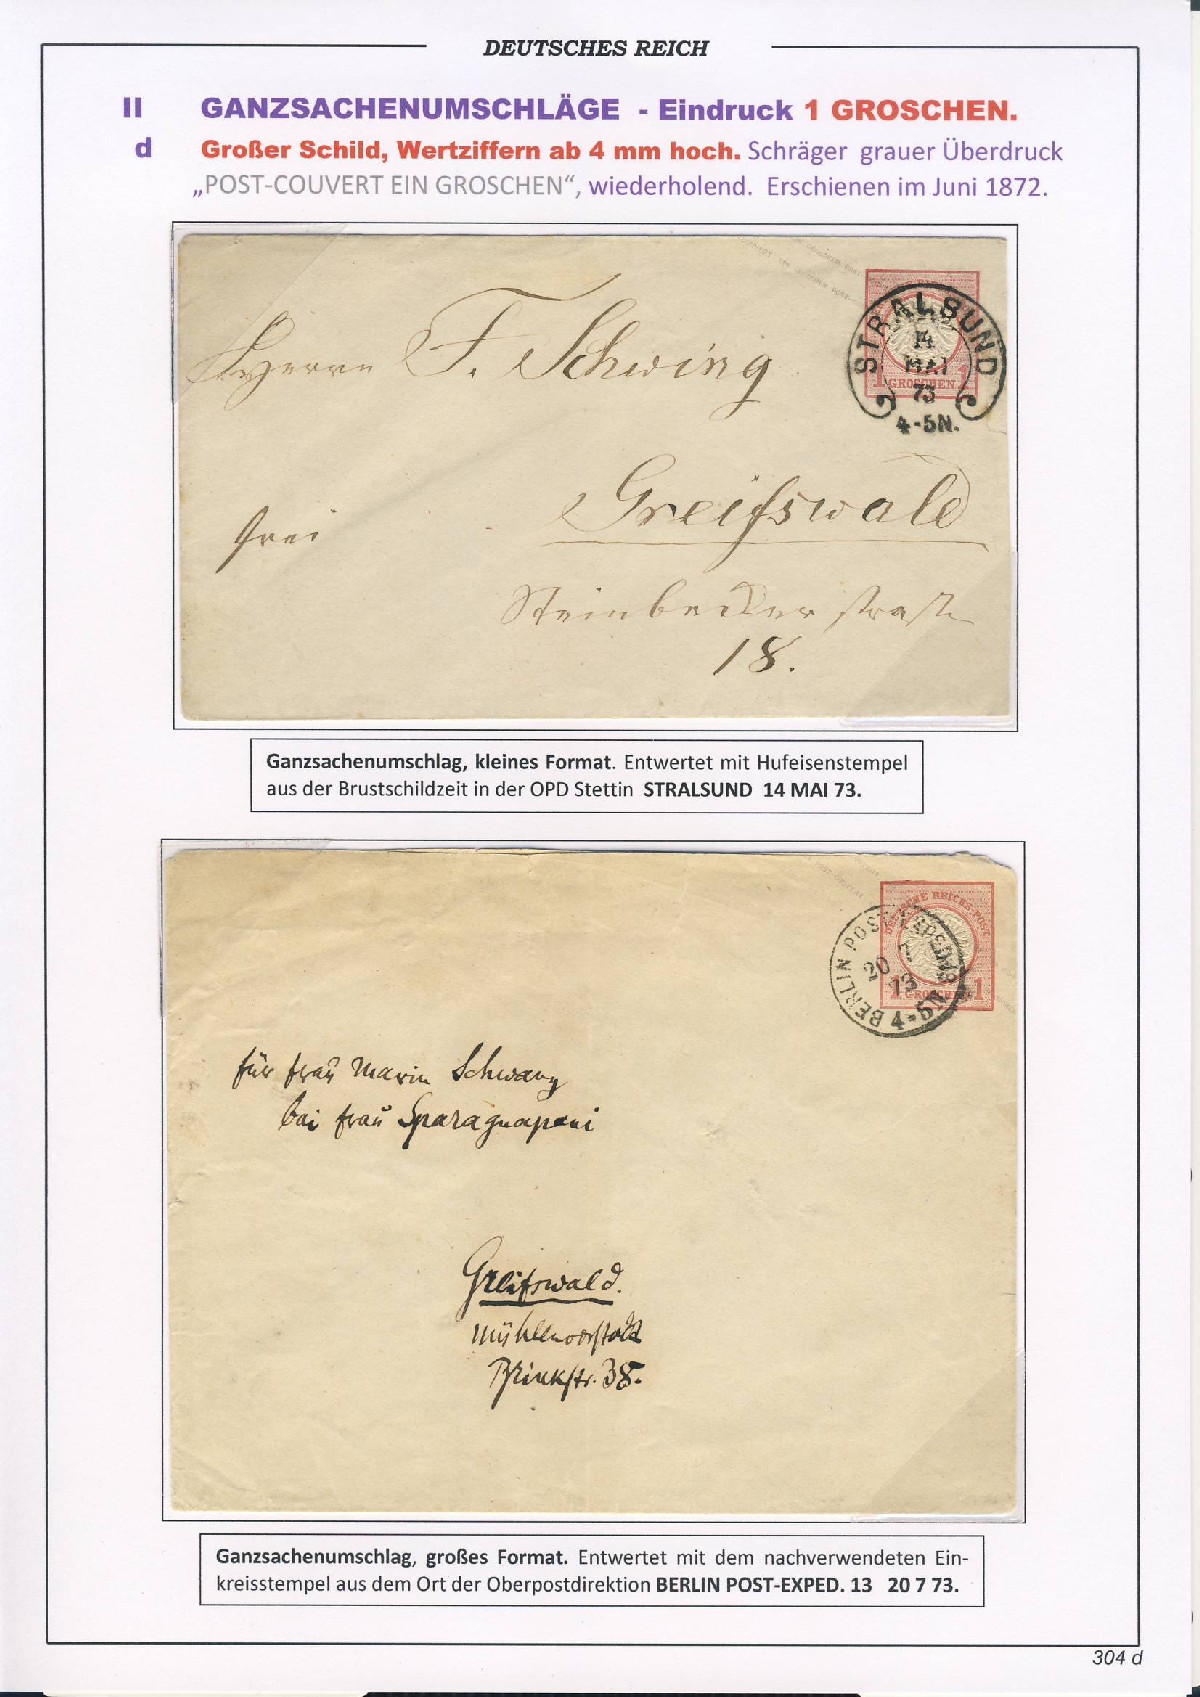 DEUTSCHES REICH
II GANZSACHENUMSCHLÄGE - Eindruck 1 GROSCHEN.
d Großer Schild, Wertziffern ab 4 mm hoch. Schräger grauer Überdruck
„POST-COUVERT EIN GROSCHEN“, wiederholend. Erschienen im Juni 1872.
STRALSUND
14
MAI
73
4-5N.
1 GROSCHEN 1
Herrn F. Schwing
Greifswald
frei
Steinbecker straße
18.
Ganzsachenumschlag, kleines Format. Entwertet mit Hufeisenstempel
aus der Brustschildzeit in der OPD Stettin STRALSUND 14 MAI 73.
DEUTSCHE REICHS-POST
1 GROSCHEN 1
BERLIN POST-EXPED. 13
20 7
73
4-5N
für Frau Marie Schwang
bei Frau Sparagnapani
Greifswald.
Mühlenvorstadt
Brinkstr. 38.
Ganzsachenumschlag, großes Format. Entwertet mit dem nachverwendeten Ein-
kreisstempel aus dem Ort der Oberpostdirektion BERLIN POST-EXPED. 13 20 7 73.
304 d